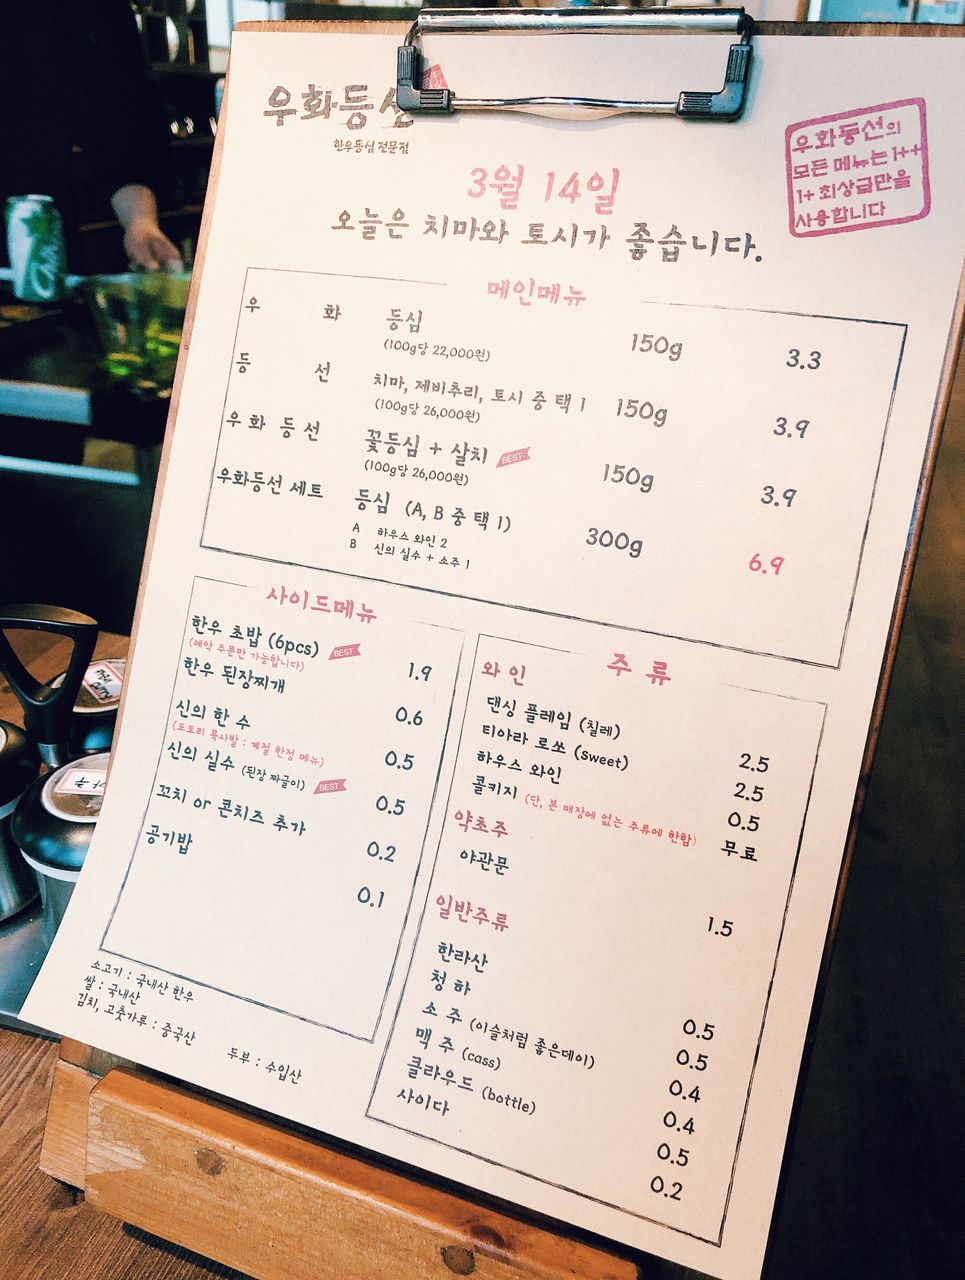 우화등선
한우등심 전문점
우화등선의
모든 메뉴는 1++
1+ 최상급만을
사용합니다
3월 14일
오늘은 치마와 토시가 좋습니다.
메인메뉴
우 화 등심 150g 3.3
(100g당 22,000원)
등 선 치마, 제비추리, 토시 중 택 1 150g 3.9
(100g당 26,000원)
우 화 등 선 꽃등심 + 살치 BEST 150g 3.9
(100g당 26,000원)
우화등선 세트 등심 (A, B 중 택 1) 300g 6.9
A 하우스 와인 2
B 신의 실수 + 소주 1
사이드메뉴
한우 초밥 (6pcs) BEST 1.9
(예약 주문만 가능합니다)
한우 된장찌개 0.6
신의 한 수 0.5
(도토리 묵사발 : 계절 한정 메뉴)
신의 실수 (된장 짜글이) BEST 0.5
꼬치 or 콘치즈 추가 0.2
공기밥 0.1
주 류
와 인
댄싱 플레임 (칠레) 2.5
티아라 로쏘 (sweet) 2.5
하우스 와인 0.5
콜키지 (단, 본 매장에 없는 주류에 한함) 무료
약초주
야관문 1.5
일반주류
한라산 0.5
청 하 0.5
소 주 (이슬처럼 좋은데이) 0.4
맥 주 (cass) 0.4
클라우드 (bottle) 0.5
사이다 0.2
소고기 : 국내산 한우
쌀 : 국내산
김치, 고춧가루 : 중국산 두부 : 수입산